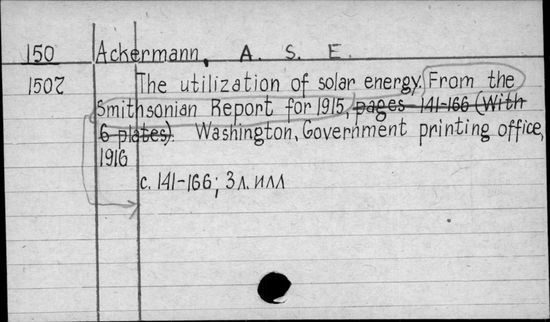 150 Ackermann, A. S. E.
1502 The utilization of solar energy. From the
Smithsonian Report for 1915, pages 141-166 (With
6 plates). Washington, Government printing office,
1916
с. 141-166; 3 л. илл